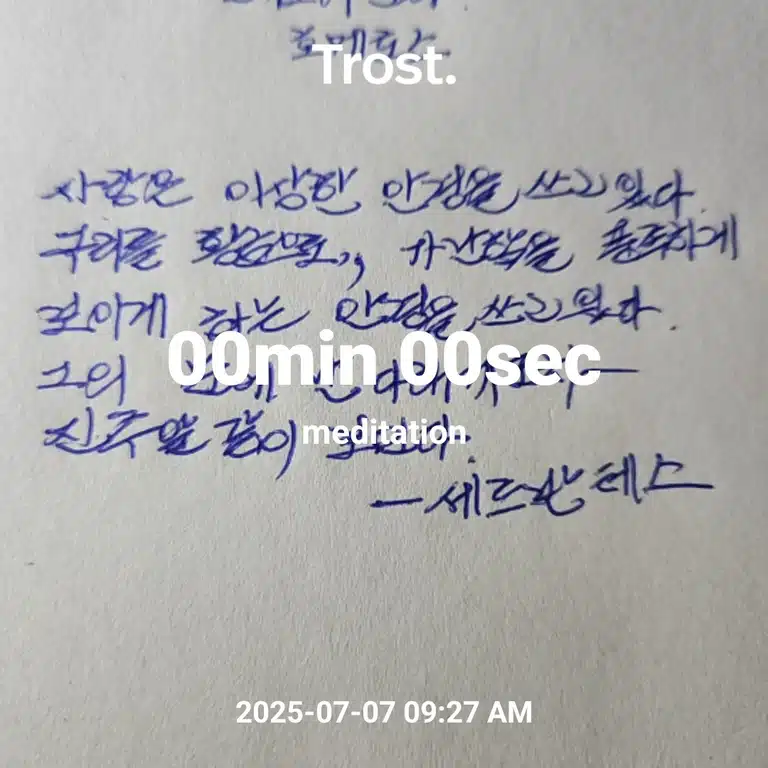 Trost.
사랑은 이상한 안경을 쓰고 있다.
구리를 황금으로, 가난함을 풍족하게
보이게 하는 안경을 쓰고 있다.
00min 00sec
그의 눈에 난
meditation
진주알 같이 보인다.
―세르반테스
2025-07-07 09:27 AM